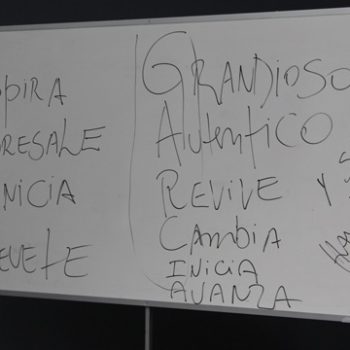 OPIRA
RESALE
NICIA
EVETE
GRANDIOSO
AUTENTICO
REVIVE Y
CAMBIA
INICIA
AVANZA